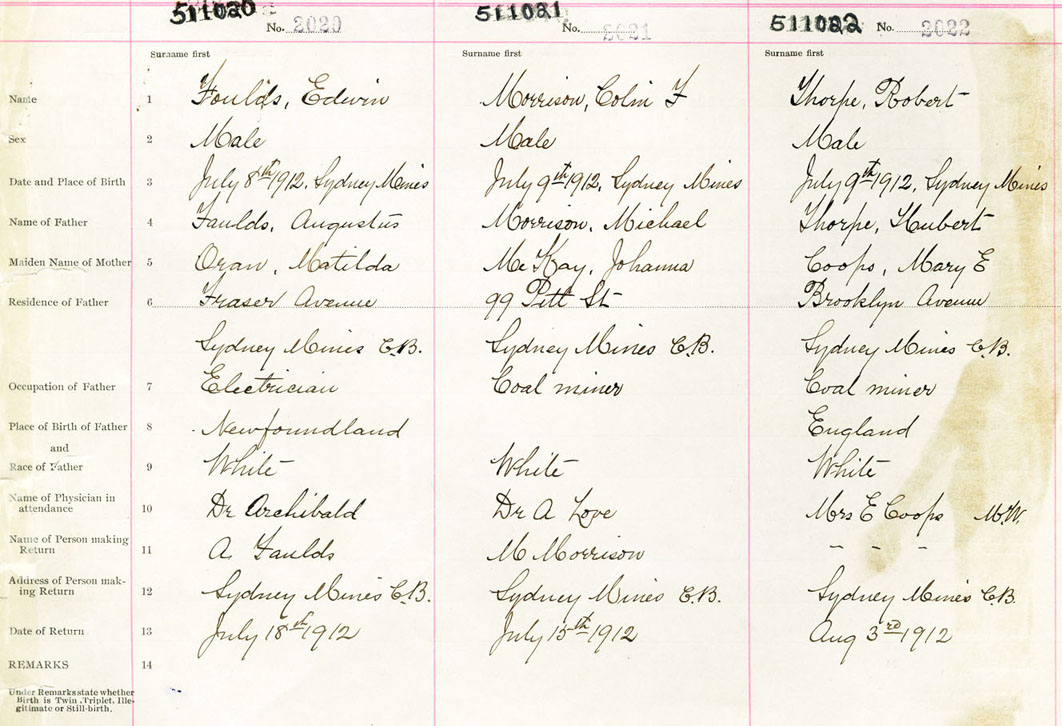 511020 511021 511022
No. 2020 No. 2021 No. 2022
Surname first Surname first Surname first
Name 1 Foulds, Edwin Morrison, Colin F Thorpe, Robert
Sex 2 Male Male Male
Date and Place of Birth 3 July 8th 1912, Sydney Mines July 9th 1912, Sydney Mines July 9th 1912, Sydney Mines
Name of Father 4 Faulds, Augustus Morrison, Michael Thorpe, Hubert
Maiden Name of Mother 5 Oran, Matilda McKay, Johanna Coops, Mary E
Residence of Father 6 Fraser Avenue 99 Pitt St Brooklyn Avenue
Sydney Mines C.B. Sydney Mines C.B. Sydney Mines C.B.
Occupation of Father 7 Electrician Coal miner Coal miner
Place of Birth of Father 8 Newfoundland England
and
Race of Father 9 White White White
Name of Physician in
attendance 10 Dr Archibald Dr A Love Mrs E Coops M.W.
Name of Person making
Return 11 A. Faulds M Morrison - - -
Address of Person mak-
ing Return 12 Sydney Mines C.B. Sydney Mines C.B. Sydney Mines C.B.
Date of Return 13 July 18th 1912 July 15th 1912 Aug 3rd 1912
REMARKS 14
Under Remarks state whether
Birth is Twin, Triplet, Ille-
gitimate or Still-birth.